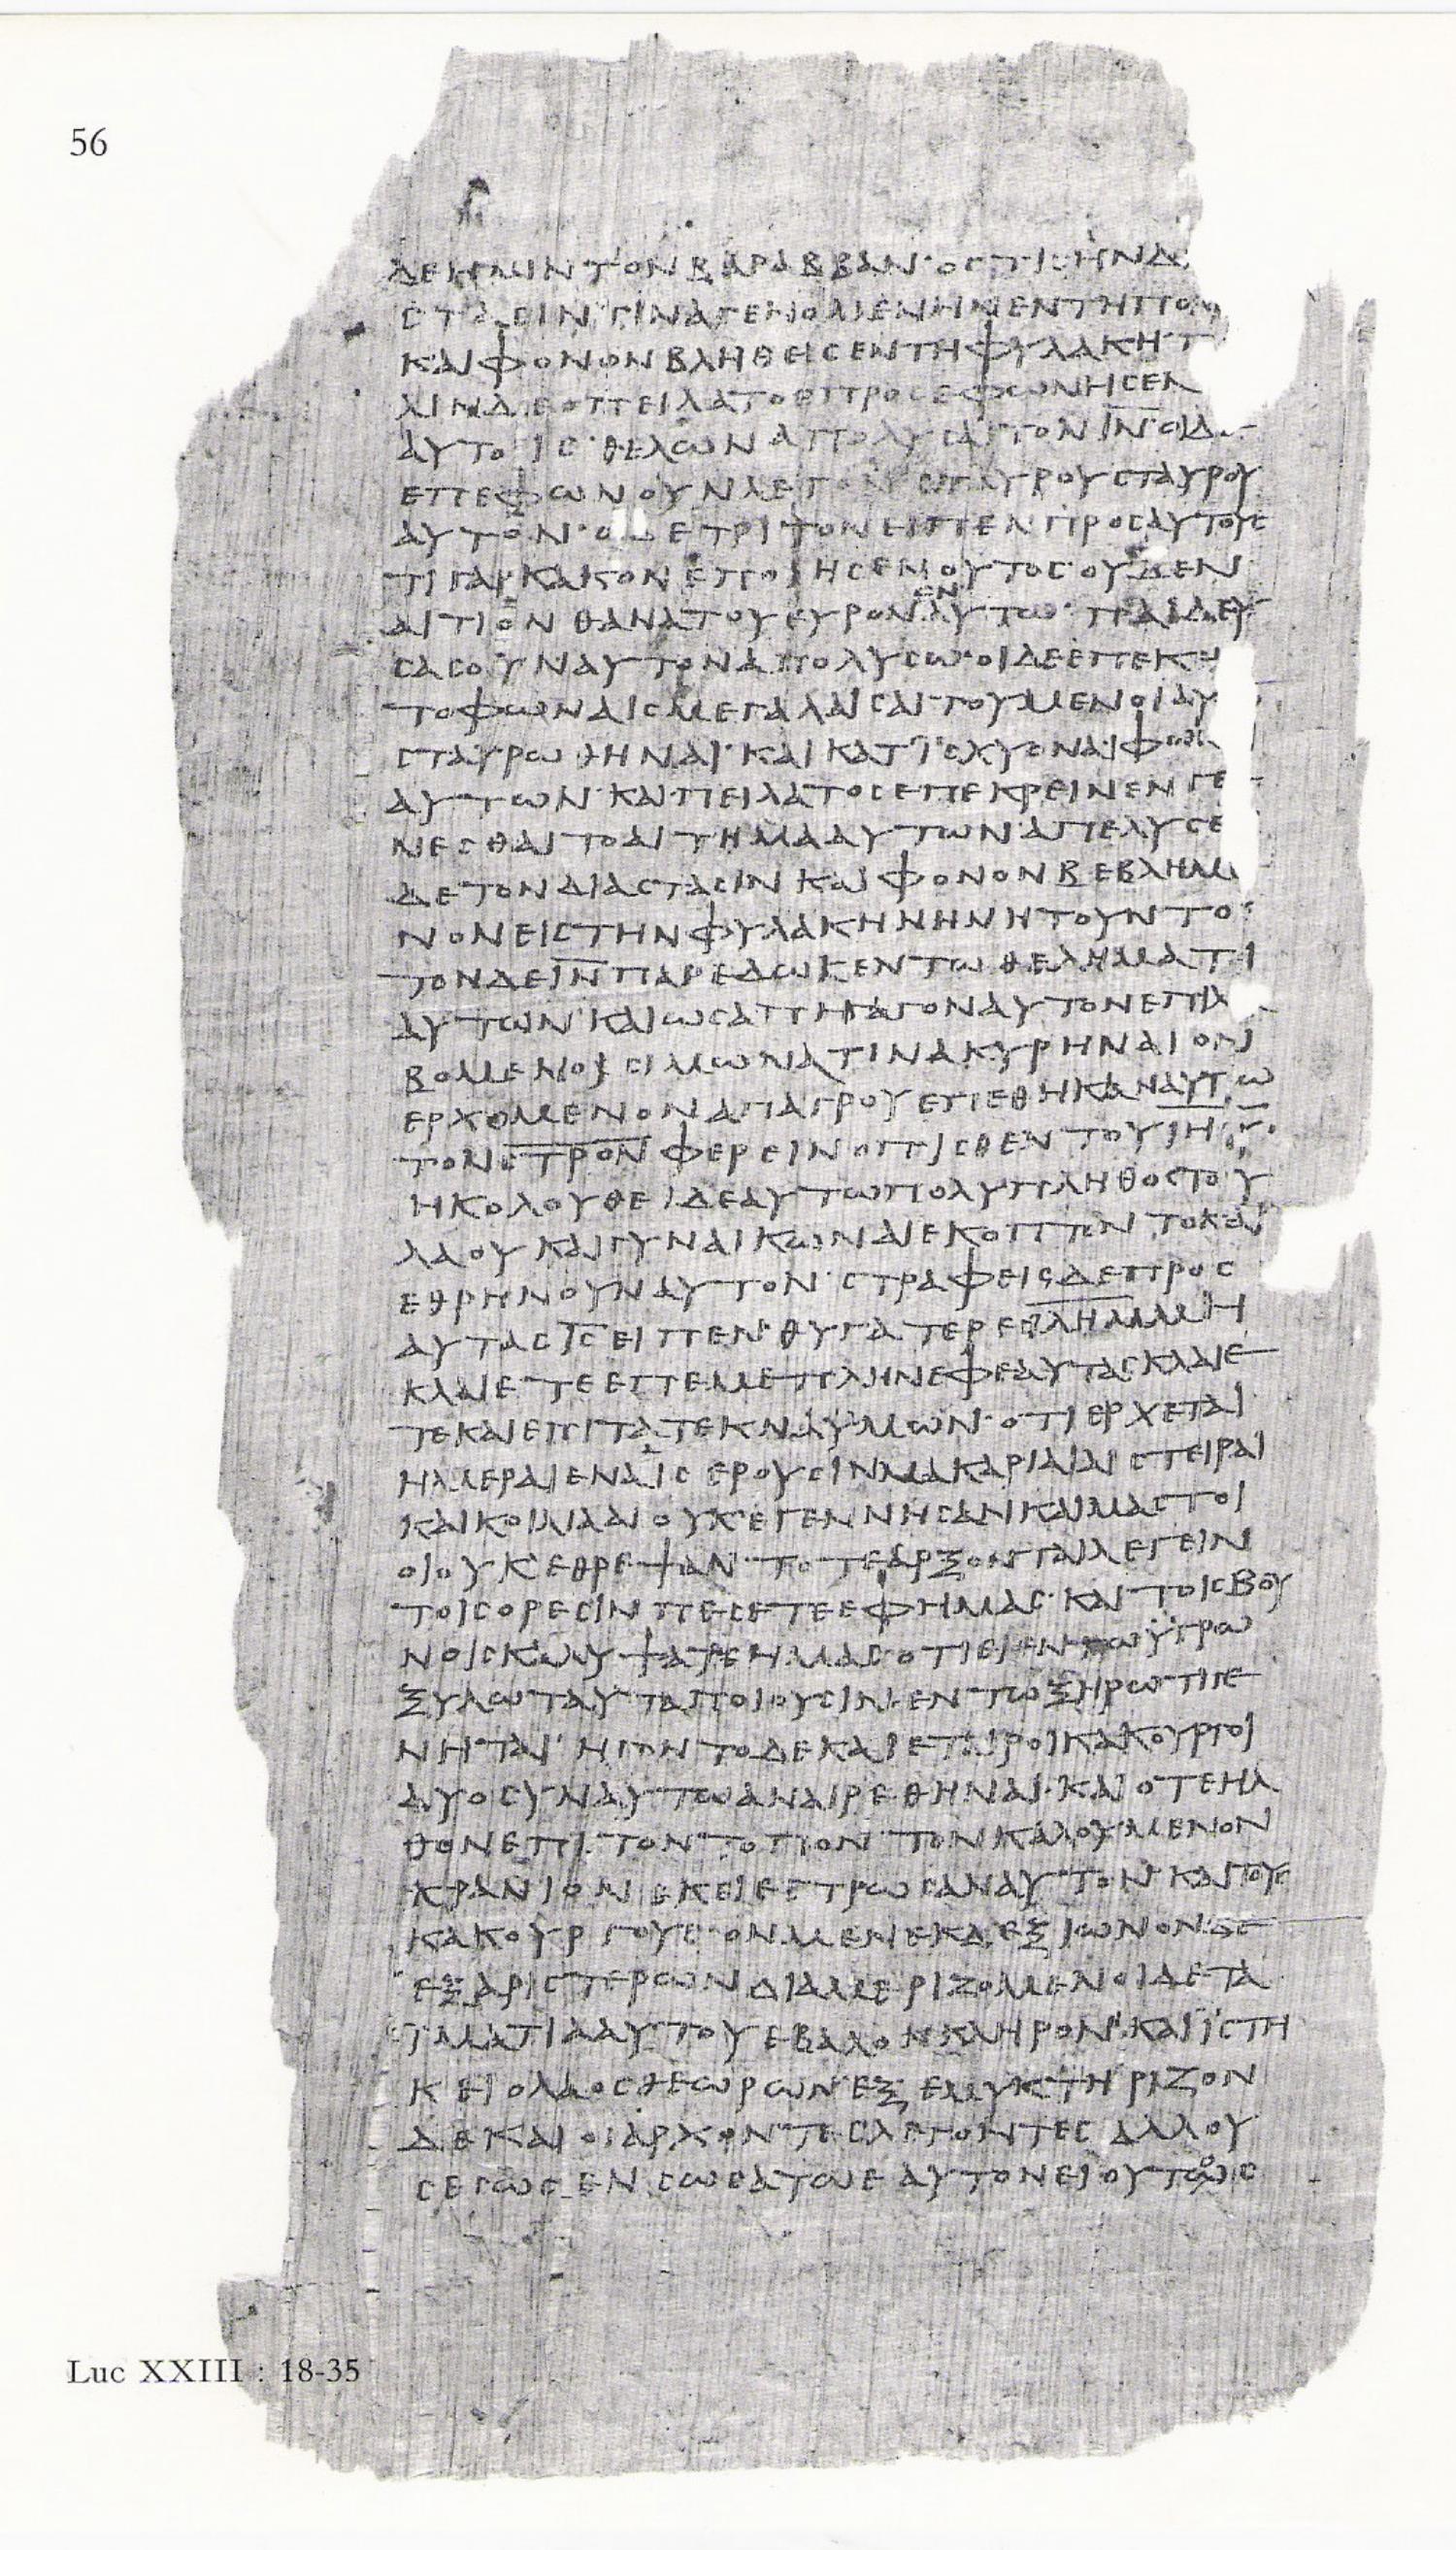 56
ΔΕΗΜΙΝΤΟΝΒΑΡΑΒΒΑΝ·ΟϹΤΙϹΗΝΔ
ϹΤΑϹΙΝΤΙΝΑΓΕΝΟΜΕΝΗΝΕΝΤΗΠΟ
ΚΑΙΦΟΝΟΝΒΛΗΘΕΙϹΕΝΤΗΦΥΛΑΚΗ·Π
ΛΙΝΔΕΟΠΕΙΛΑΤΟϹΠΡΟϹΕΦΩΝΗϹΕΝ
ΑΥΤΟΙϹ·ΘΕΛΩΝΑΠΟΛΥϹΑΙΤΟΝΙΝ·ΟΙΔΕ
ΕΠΕΦΩΝΟΥΝΛΕΓΟΝ ϹΤΑΥΡΟΥϹΤΑΥΡΟΥ
ΑΥΤΟΝ·ΟΔΕΤΡΙΤΟΝΕΙΠΕΝΠΡΟϹΑΥΤΟΥϹ
ΤΙΓΑΡΚΑΚΟΝΕΠΟΙΗϹΕΝΟΥΤΟϹ·ΟΥΔΕΝ
ΑΙΤΙΟΝΘΑΝΑΤΟΥΕΥΡΟΝΕΝΑΥΤΩ·ΠΑΙΔΕΥ
ϹΑϹΟΥΝΑΥΤΟΝΑΠΟΛΥϹΩ·ΟΙΔΕΕΠΕΚΕΙ
ΤΟΦΩΝΑΙϹΜΕΓΑΛΑΙϹΑΙΤΟΥΜΕΝΟΙΑΥ
ϹΤΑΥΡΩΘΗΝΑΙ·ΚΑΙΚΑΤΪϹΧΥΟΝΑΙΦΩΝ
ΑΥΤΩΝ·ΚΑΙΠΕΙΛΑΤΟϹΕΠΕΚΡΕΙΝΕΝΓΕ
ΝΕϹΘΑΙΤΟΑΙΤΗΜΑΑΥΤΩΝΑΠΕΛΥϹΕ
ΔΕΤΟΝΔΙΑϹΤΑϹΙΝΚΑΙΦΟΝΟΝΒΕΒΛΗΜ
ΝΟΝΕΙϹΤΗΝΦΥΛΑΚΗΝΗΝΗΤΟΥΝΤΟ·
ΤΟΝΔΕΙΝΠΑΡΕΔΩΚΕΝΤΩΘΕΛΗΜΑΤΙ
ΑΥΤΩΝ·ΚΑΙΩϹΑΠΗΓΑΓΟΝΑΥΤΟΝΕΠΙΛΑ
ΒΟΜΕΝΟΙϹΙΜΩΝΑΤΙΝΑΚΥΡΗΝΑΙΟΝ
ΕΡΧΟΜΕΝΟΝΑΠΑΓΡΟΥΕΠΕΘΗΚΑΝΑΥΤΩ
ΤΟΝϹΤΡΟΝΦΕΡΕΙΝΟΠΙϹΘΕΝΤΟΥΙΗΥ·
ΗΚΟΛΟΥΘΕΙΔΕΑΥΤΩΠΟΛΥΠΛΗΘΟϹΤΟΥ
ΛΑΟΥΚΑΙΓΥΝΑΙΚΩΝΑΙΕΚΟΠΤΟΝΤΟΚΑΙ
ΕΘΡΗΝΟΥΝΑΥΤΟΝ·ϹΤΡΑΦΕΙϹΔΕΠΡΟϹ
ΑΥΤΑϹΙϹΕΙΠΕΝ·ΘΥΓΑΤΕΡΕϹΙΛΗΜΜΗ
ΚΛΑΙΕΤΕΕΠΕΜΕΠΛΗΝΕΦΕΑΥΤΑϹΚΛΑΙΕ
ΤΕΚΑΙΕΠΙΤΑΤΕΚΝΑΫΜΩΝ·ΟΤΙΕΡΧΕΤΑΙ
ΗΜΕΡΑΙΕΝΑΙϹΕΡΟΥϹΙΝΜΑΚΑΡΙΑΙΑΙϹΤΕΙΡΑΙ
ΚΑΙΚΟΙΛΙΑΑΙΟΥΚΕΓΕΝΝΗϹΑΝΚΑΙΜΑϹΤΟΙ
ΟΙΟΥΚΕΘΡΕΨΑΝ·ΤΟΤΕΑΡΞΟΝΤΑΙΛΕΓΕΙΝ
ΤΟΙϹΟΡΕϹΙΝΠΕϹΕΤΕΕΦΗΜΑϹ·ΚΑΙΤΟΙϹΒΟΥ
ΝΟΙϹΚΩΥΨΑΤΕΗΜΑϹΟΤΙΕΙΕΝΤΩΫΓΡΩ
ΞΥΛΩΤΑΥΤΑΠΟΙΟΥϹΙΝ·ΕΝΤΩΞΗΡΩΤΙΓΕ
ΝΗΤΑΙ·ΗΓΟΝΤΟΔΕΚΑΙΕΤΕΡΟΙΚΑΚΟΥΡΓΟΙ
ΔΥΟϹΥΝΑΥΤΩΑΝΑΙΡΕΘΗΝΑΙ·ΚΑΙΟΤΕΗΛ
ΘΟΝΕΠΙΤΟΝΤΟΠΟΝΤΟΝΚΑΛΟΥΜΕΝΟΝ
ΚΡΑΝΙΟΝΕΚΕΙΕϹΤΡΩϹΑΝΑΥΤΟΝΚΑΙΤΟΥϹ
ΚΑΚΟΥΡΓΟΥϹ·ΟΝΜΕΝΕΚΔΕΞΙΩΝΟΝΔΕ
ΕΞΑΡΙϹΤΕΡΩΝΔΙΑΜΕΡΙΖΟΜΕΝΟΙΔΕΤΑ
ΪΜΑΤΙΑΑΥΤΟΥΕΒΑΛΟΝΚΛΗΡΟΝ·ΚΑΙΪϹΤΗ
ΚΕΙΟΛΑΟϹΘΕΩΡΩΝΕΞΕΜΥΚΤΗΡΙΖΟΝ
ΔΕΚΑΙΟΙΑΡΧΟΝΤΕϹΛΕΓΟΝΤΕϹΑΛΛΟΥ
ϹΕϹΩϹΕΝϹΩϹΑΤΩΕΑΥΤΟΝΕΙΟΥΤΟϹ
Luc XXIII : 18-35